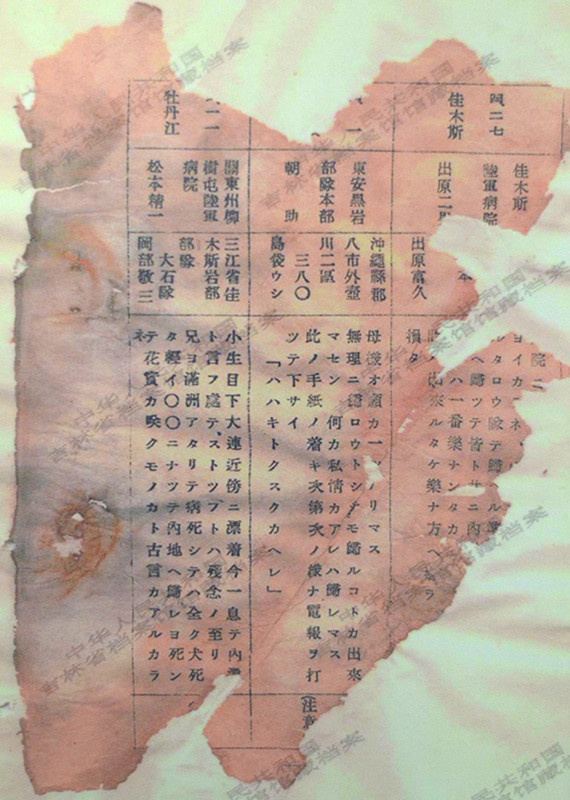 四二七
佳木斯
佳木斯
陸軍病院
出原二
本
出原富久
院ニ
ヨイカ
ルタロウ
ヘ歸ツテ皆ト
ハ一番樂ナンタカ
出來ルタケ樂ナ方ヘ
損タ
一
東安黑岩
部隊本部
朝助
沖繩縣郡
八市外壺
川二區
三八〇
島袋ウシ
無理ニ歸ロウトシテモ歸ルコトカ出來
マセン 何カ私情カアレハ歸レマス
此ノ手紙ノ着キ次第次ノ樣ナ電報ヲ打
ツテ下サイ
「ハハキトクスクカヘレ」
(注意
二一
牡丹江
關東州柳
樹屯陸軍
病院
松本精一
三江省佳
木斯岩部
部隊
大石隊
岡部敬三
小生目下大連近傍ニ漂着今一息テ內
ト言フ處テ、ストツプトハ殘念ノ至リ
兄ヨ滿洲アタリテ病死シテハ全ク犬死
タ輕イ〇〇ニナツテ內地ヘ歸レヨ死ン
テ花實カ咲クモノカト古言カアルカラ
ネ
中华人民共和国
吉林省档案馆馆藏档案